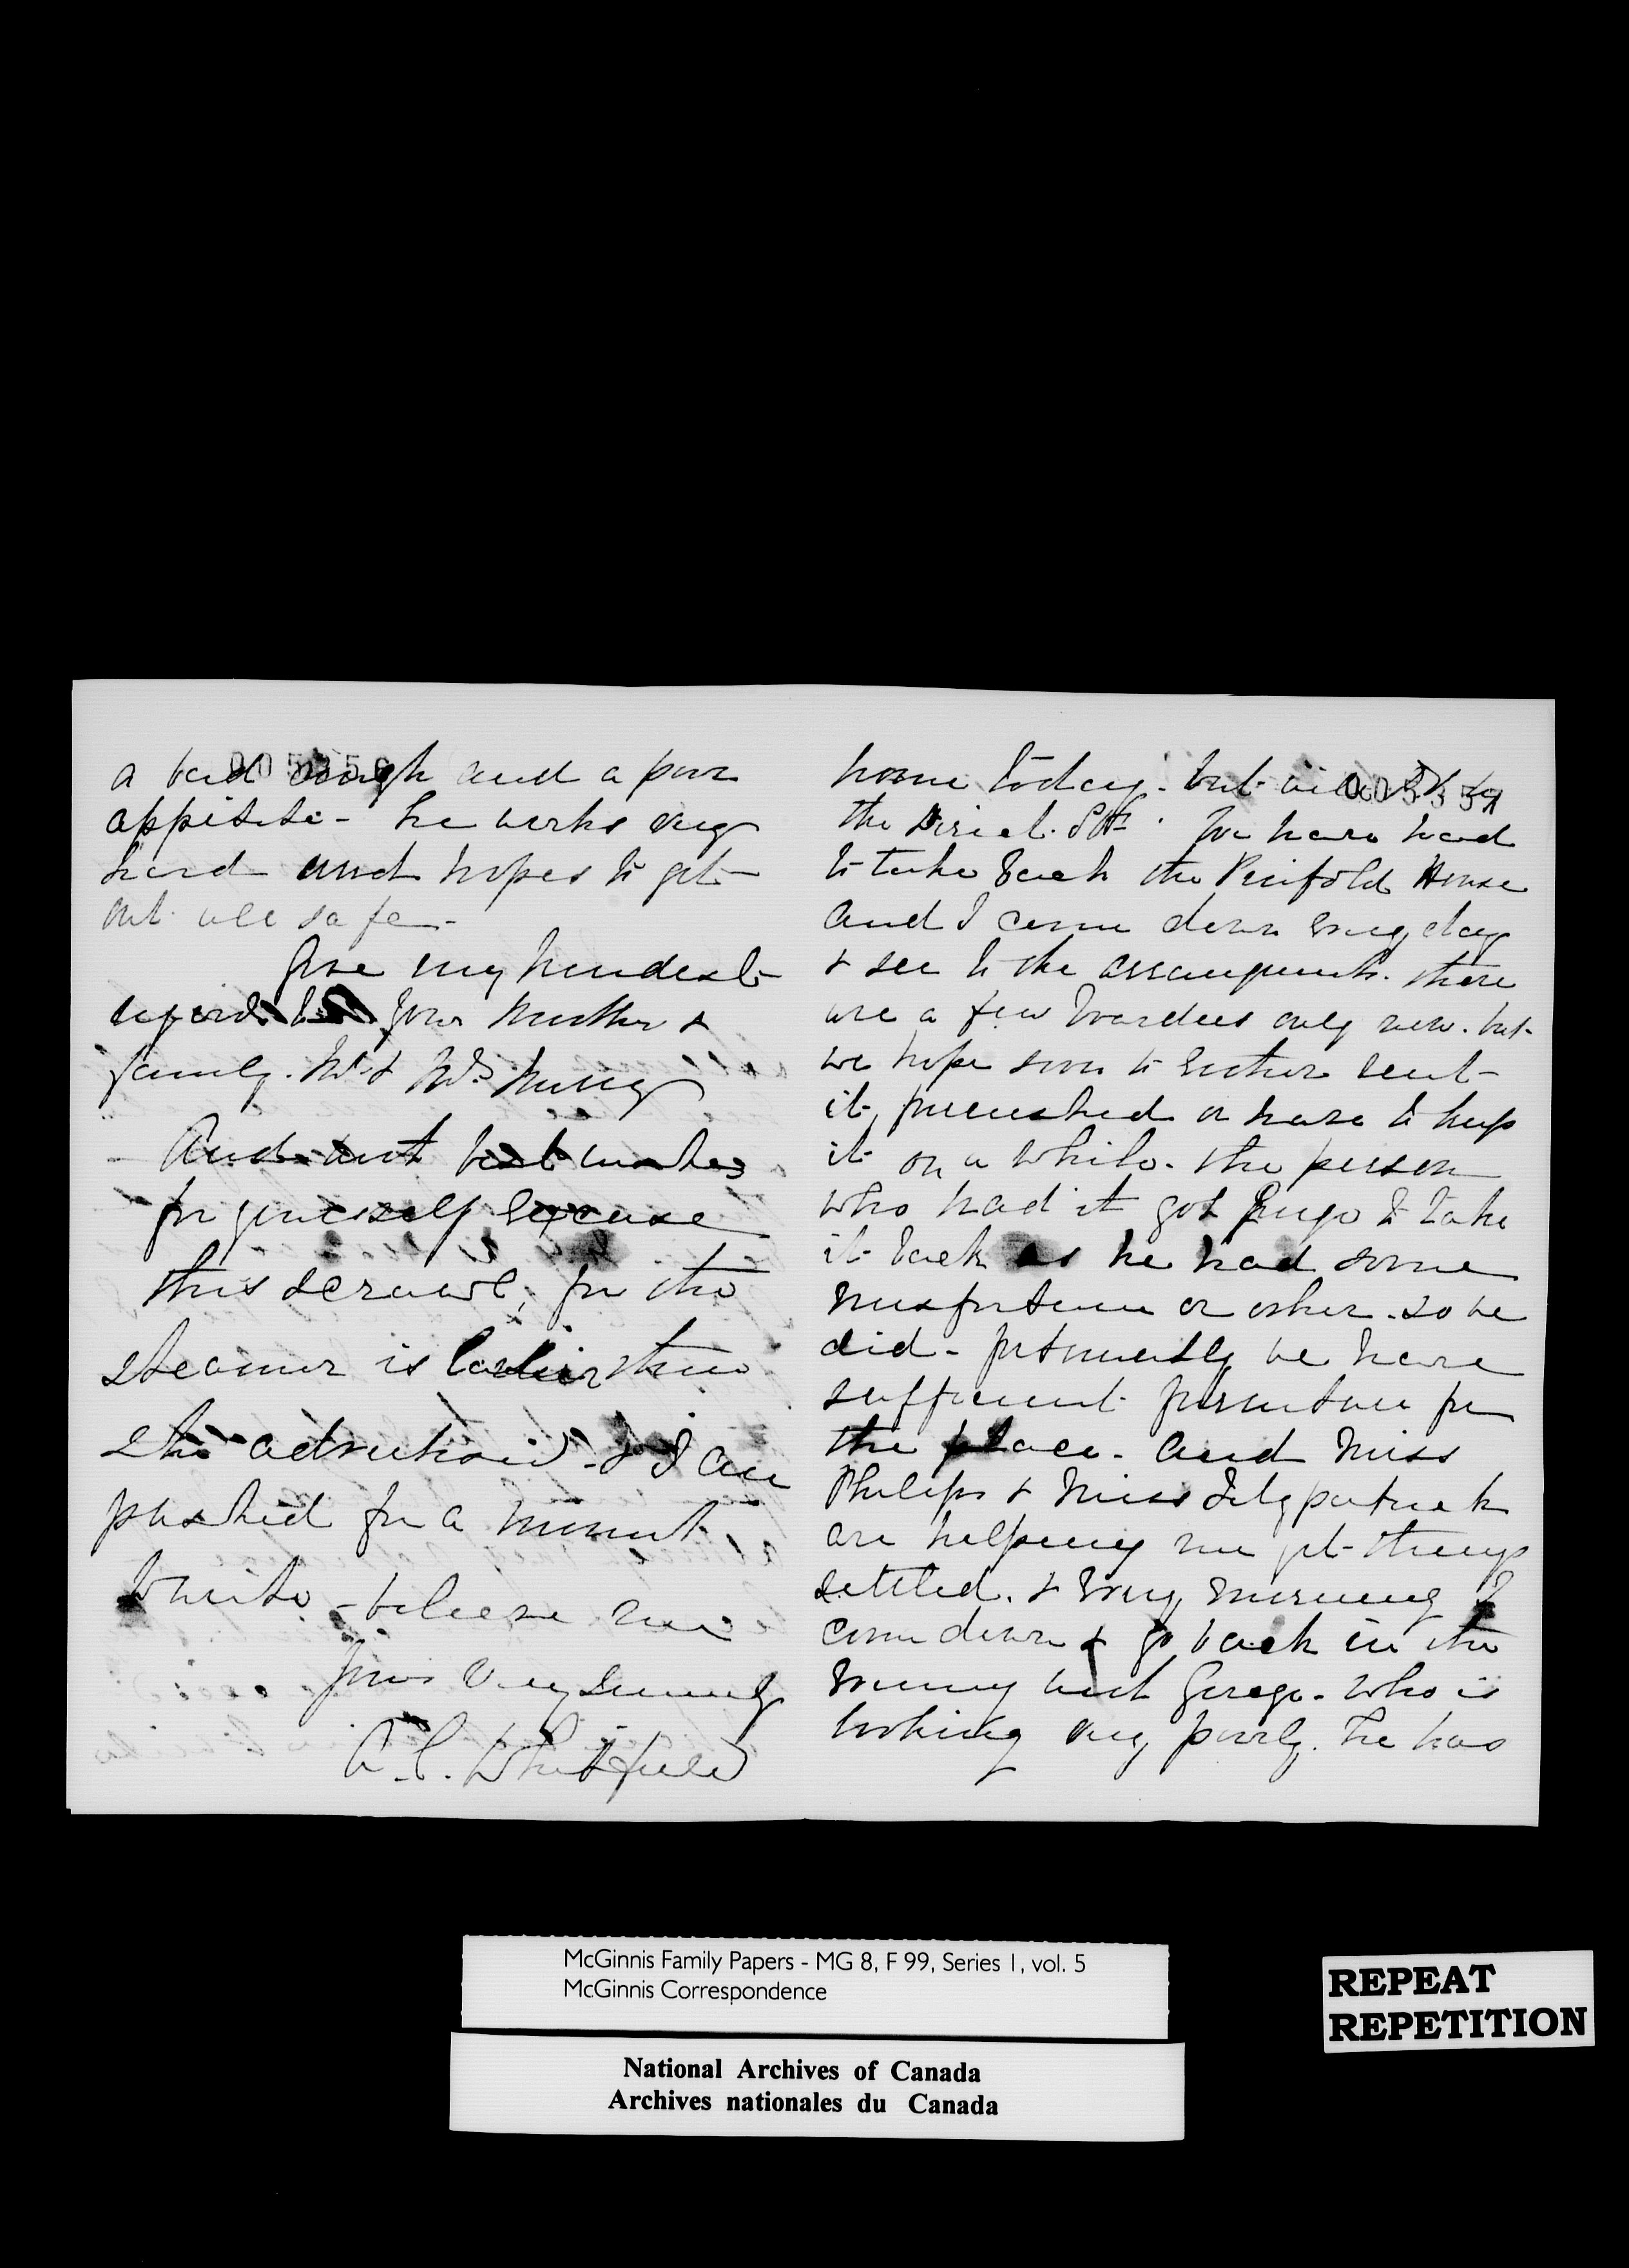 a bad cough and a poor
appetite - he works very
hard and hopes to get
out all safe -
Give my kindest
regards to your Mother &
family. Mr & Mrs
And with best wishes
for yourself excuse
this scrawl, for the
steamer is earlier than
she advertised - & I am
pushed for a minute
to write - believe me
Yours Very Sincerely
A. C. Whitfield
005356
home today - but
the Direct. St. We have had
to take back the Penifold House
and I come down every day
& see to the arrangements. there
are a few boarders only now. but
we hope soon to either rent
it, furnished or have to keep
it on a while. the person
who had it got Geogo to take
it back as he had some
misfortune or other. so we
did - fortunately we have
sufficient furniture for
the place. and Miss
Philips & Miss Fitzpatrick
are helping me get things
settled. & every morning I
come down & go back in the
evening with George. who is
looking very poorly. he has
005357
McGinnis Family Papers - MG 8, F 99, Series 1, vol. 5
McGinnis Correspondence
National Archives of Canada
Archives nationales du Canada
REPEAT
REPETITION